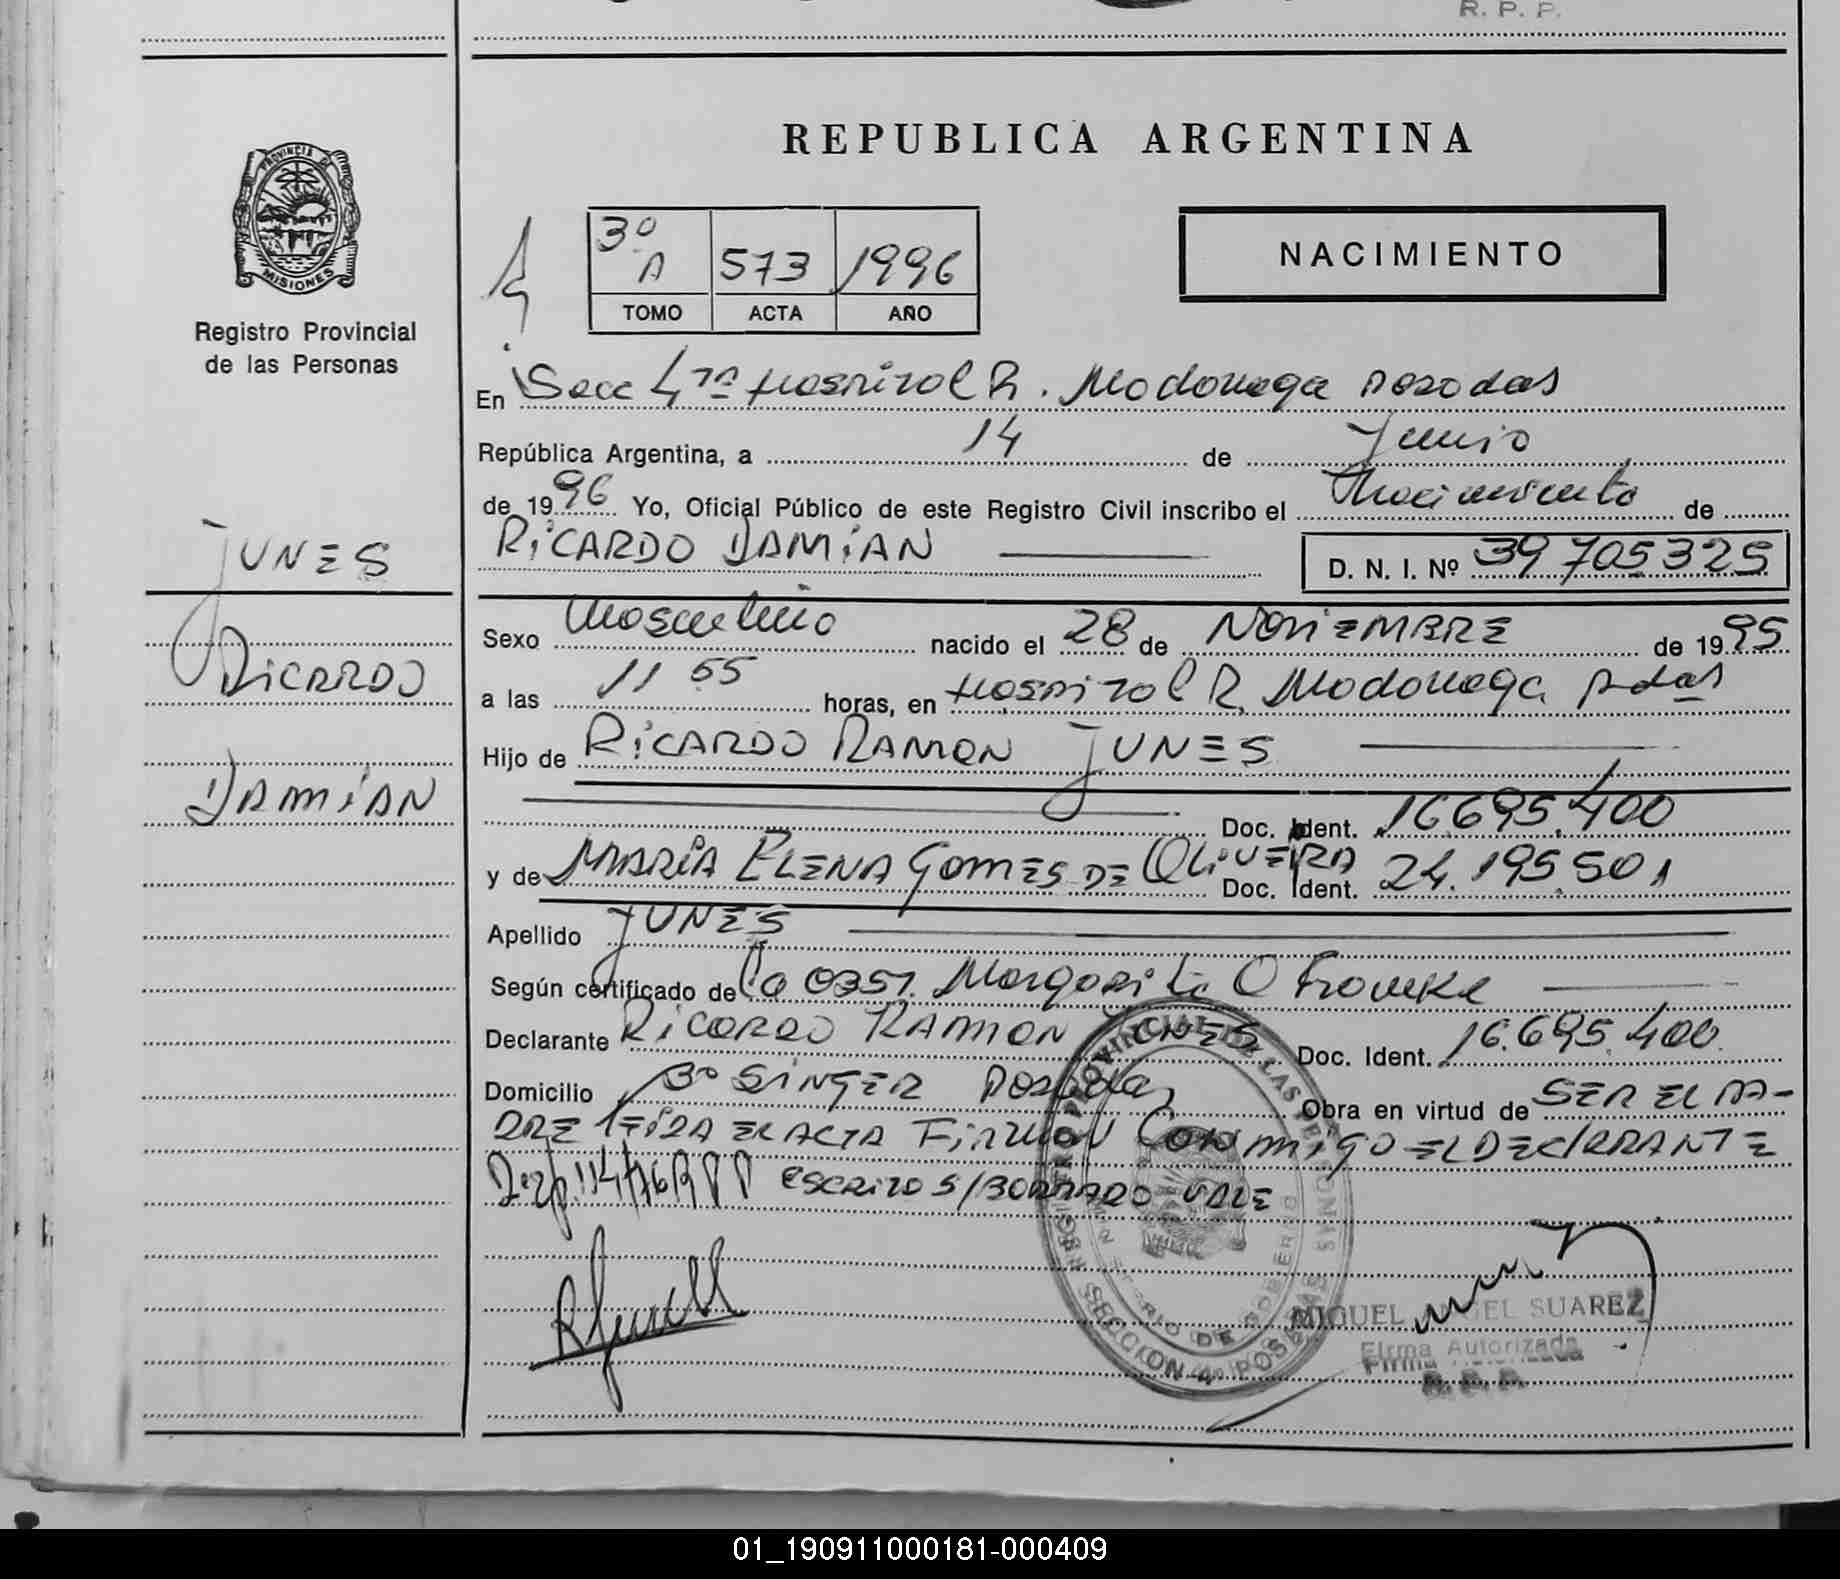 R. P. P.
REPUBLICA ARGENTINA
PROVINCIA DE
MISIONES
Registro Provincial
de las Personas
3º
A 573 1996
TOMO ACTA AÑO
NACIMIENTO
En Secc 4ta Hospital R. Madariaga Posadas
República Argentina, a 14 de Junio
de 1996 Yo, Oficial Público de este Registro Civil inscribo el Nacimiento de
RICARDO DAMIÁN D. N. I. Nº 39705325
JUNES
RICARDO
DAMIÁN
Sexo Masculino nacido el 28 de NOVIEMBRE de 1995
a las 11 55 horas, en Hospital R. Madariaga Pdas
Hijo de RICARDO RAMON JUNES
Doc. Ident. 16.695.400
y de MARÍA ELENA GOMES DE OLIVEIRA Doc. Ident. 24.195.501
Apellido JUNES
Según certificado de Co 0357. Margarita O
Declarante RICARDO RAMON JUNES Doc. Ident. 16.695.400
Domicilio Bº SINGER Posadas Obra en virtud de SER EL PA-
DRE LEÍDA EL ACTA FIRMAN CONMIGO EL DECLARANTE
ESCRITO S/BORRADO VALE
REGISTRO PROVINCIAL DE LAS PERSONAS
MINISTERIO DE GOBIERNO
SECCION 4º POSADAS
MIGUEL ANGEL SUAREZ
Firma Autorizada
R. P. P.
01_190911000181-000409